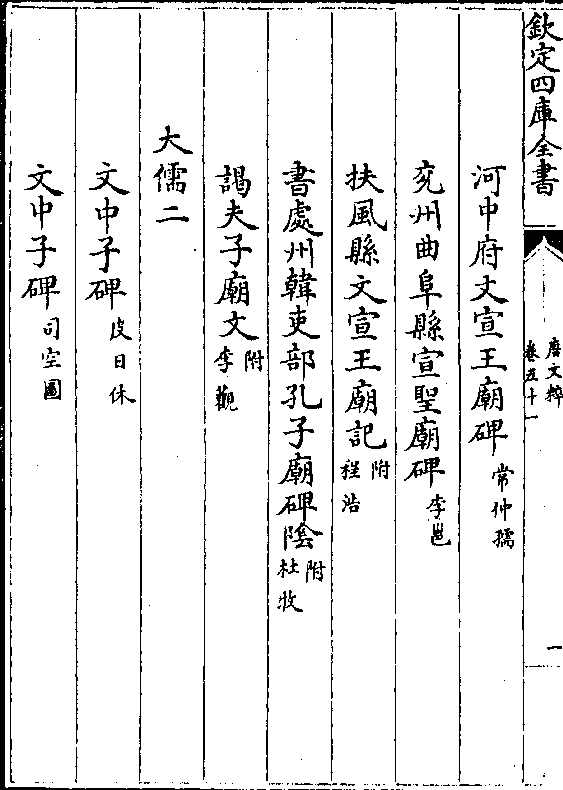 欽定四庫全書
唐文粹
卷五十一
一
河中府文宣王廟碑 常仲孺
兖州曲阜縣宣聖廟碑 李邕
扶風縣文宣王廟記 附 程浩
書處州韓吏部孔子廟碑陰 附 杜牧
謁夫子廟文 附 李觀
大儒二
文中子碑 皮日休
文中子碑 司空圖